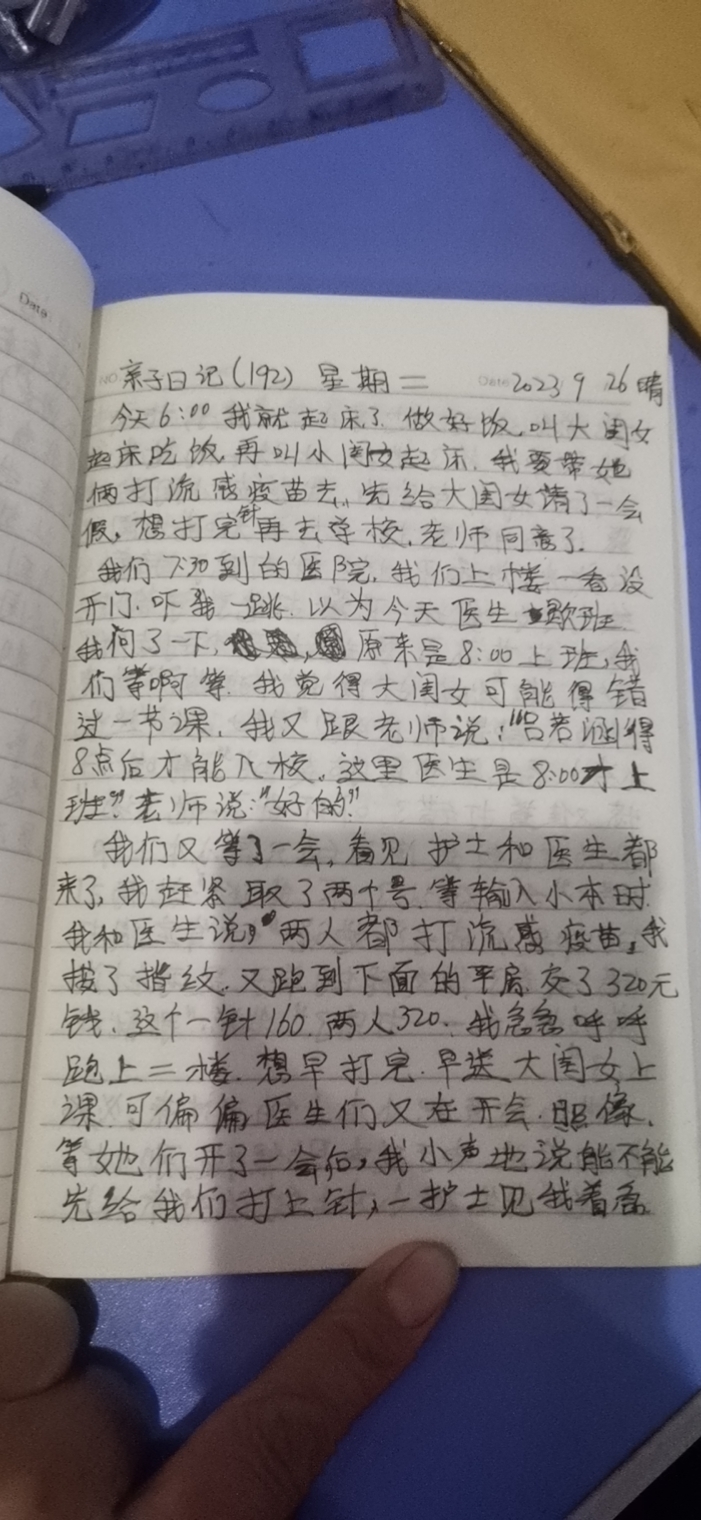 Date:
NO. 亲子日记(192) 星期二 Date 2023 9 26 晴
今天6:00我就起床了.做好饭,叫大闺女
起床吃饭,再叫小闺女起床.我要带她
俩打流感疫苗去,先给大闺女请了一会
假,想打完针再去学校,老师同意了.
我们7:30到的医院,我们上楼一看没
开门.吓我一跳.以为今天医生歇班
我问了一下,原来是8:00上班,我
们等啊等.我觉得大闺女可能得错
过一节课,我又跟老师说:"吕若涵得
8点后才能入校,这里医生是8:00才上
班."老师说:"好的."
我们又等了一会,看见护士和医生都
来了,我赶紧取了两个号.等输入小本时.
我和医生说,"两人都打流感疫苗,我
按了指纹.又跑到下面的平房交了320元
钱.这个一针160.两人320.我急急呼呼
跑上二楼.想早打完.早送大闺女上
课.可偏偏医生们又在开会.照像.
等她们开了一会后,我小声地说能不能
先给我们打上针,一护士见我着急